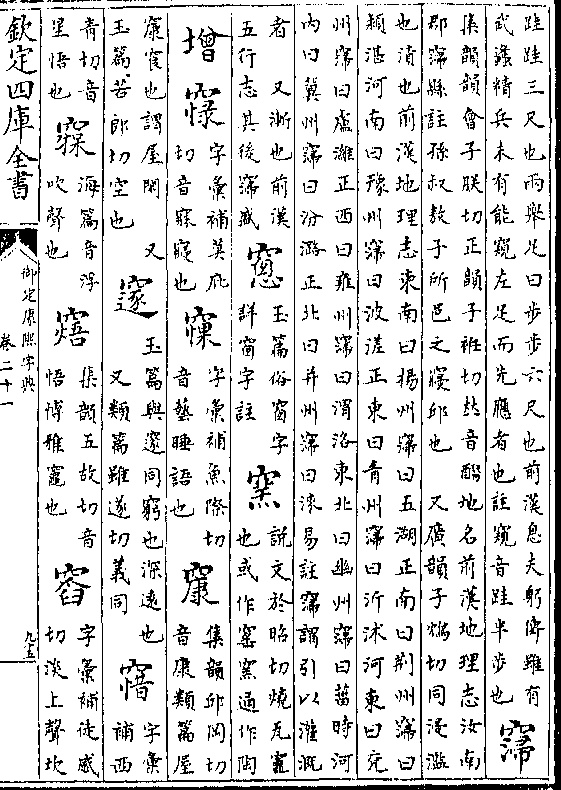 跬跬三尺也兩舉足曰步步六尺也前漢息夫躬傳雖有
武蠭精兵未有能窺左足而先應者也註窺音跬半步也
𥧲
集韻韻會子朕切正韻子袵切𠀤音醋地名前漢地理志汝南
郡𥧲縣註孫叔敖子所邑之寢邱也 又廣韻子鴆切同浸濫
也漬也前漢地理志東南曰揚州𥧲曰五湖正南曰荆州𥧲曰
潁湛河南曰豫州𥧲曰波溠正東曰青州𥧲曰沂沭河東曰兗
州𥧲曰盧濰正西曰雍州𥧲曰渭洛東北曰幽州𥧲曰菑時河
內曰冀州𥧲曰汾潞正北曰并州𥧲曰淶易註𥧲謂引以灌溉
者 又漸也前漢
五行志其後𥧲盛
窻
玉篇俗窗字
詳窗字註
窯
說文於昭切燒瓦竈
也或作窰窯通作陶
增
字彙補莫庇
切音寐寢也
字彙補魚際切
音藝睡語也
䆲
集韻邱岡切
音康類篇屋
䆲㝗也謂屋閒 又
玉篇苦郎切空也
玉篇與邃同窮也深遠也
又類篇雖遂切義同
字彙
補西
青切音
星悟也
海篇音浮
吹聲也
窹
集韻五故切音
悟博雅竈也
字彙補徒感
切淡上聲坎
欽定四庫全書
御定康熙字典
卷二十一
九五